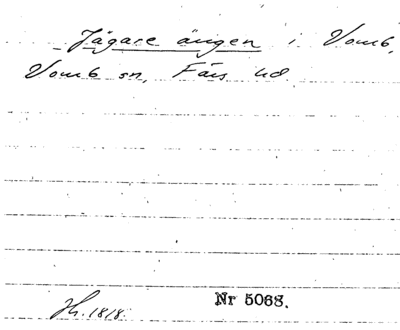 Jägare ängen i Vomb,
Vomb sn, Färs hd
Nr 5068.
1818.